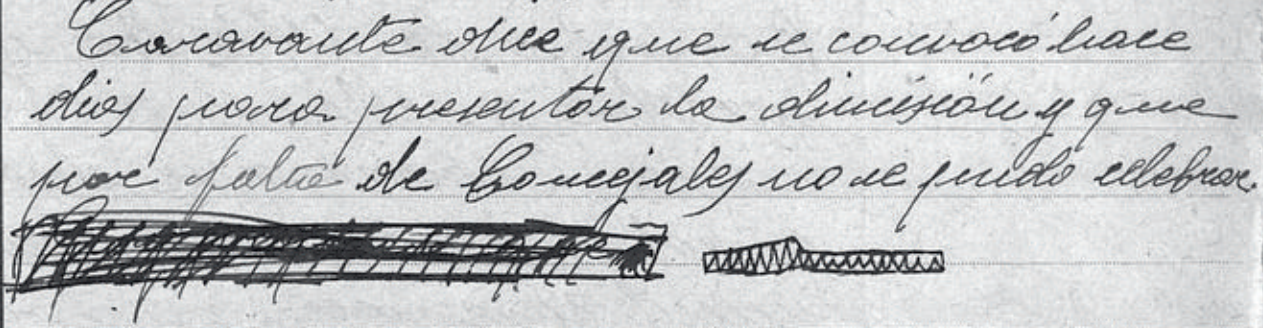 Caravante dice que se convocó hace
dias para presentar la dimisión y que
por falta de Concejales no se pudo celebrar.